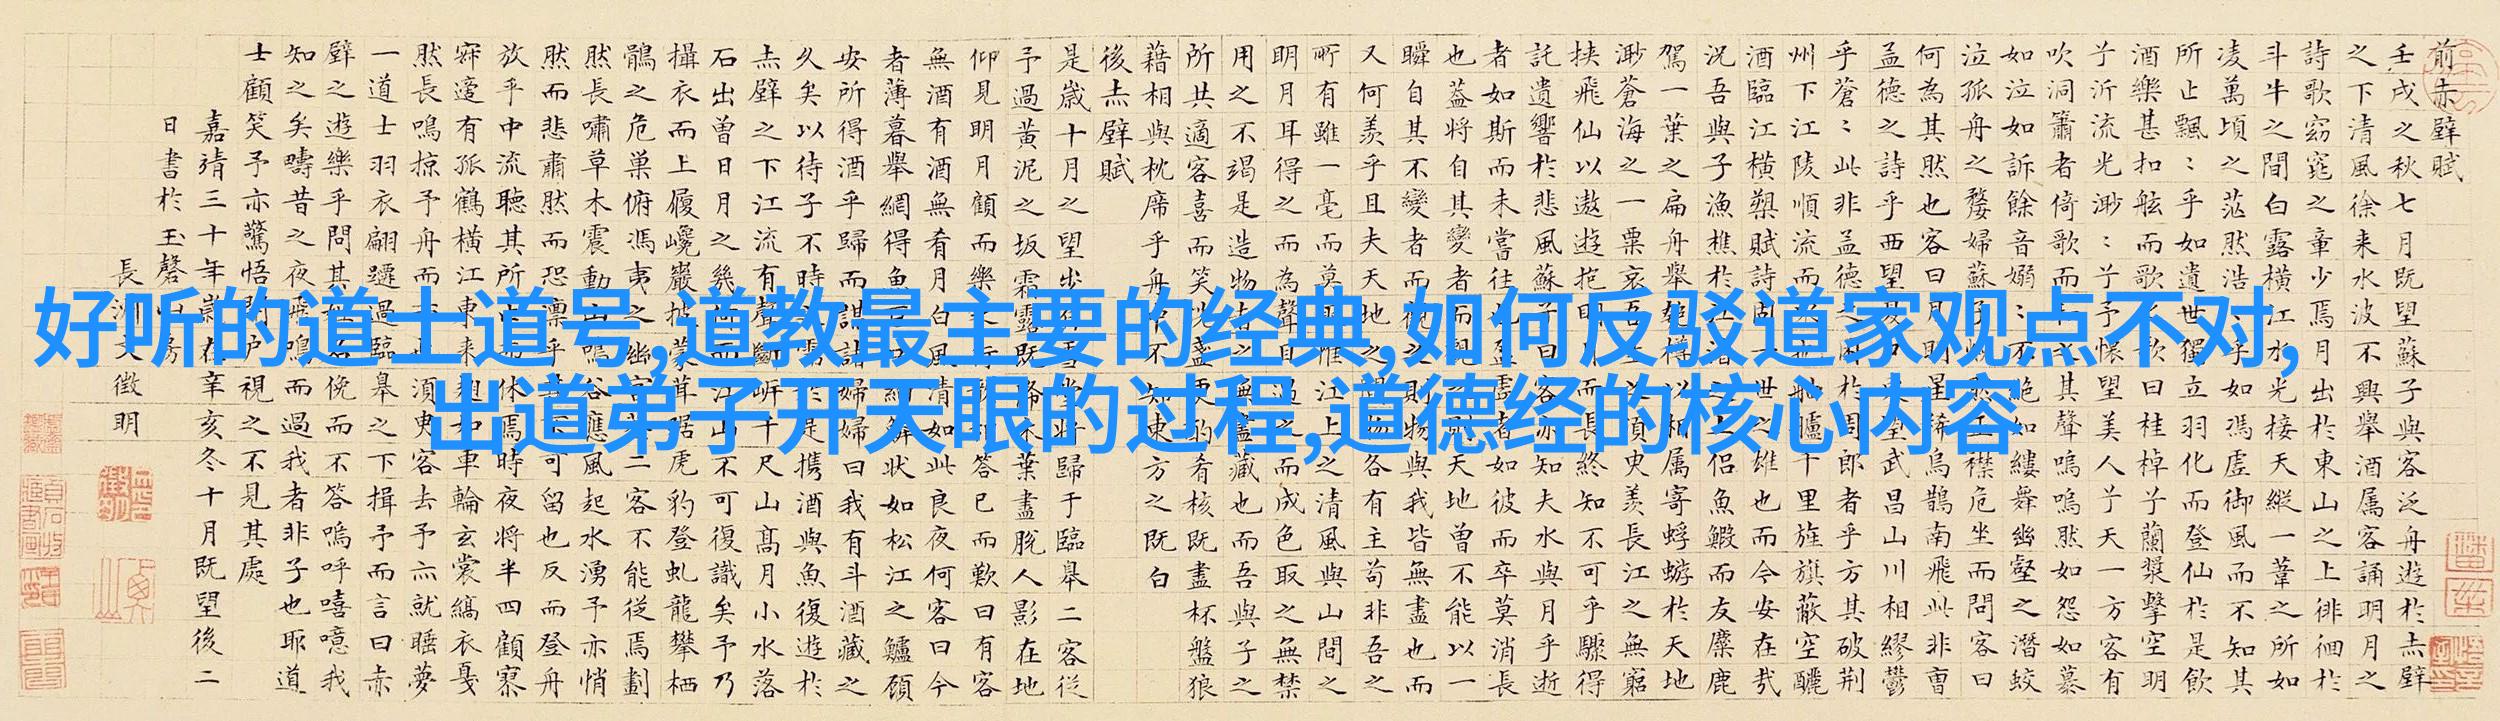 好听的道士道号,道教最主要的经典,如何反驳道家观点不对,
出道弟子开天眼的过程,道德经的核心内容
前赤壁賦
壬戌之秋七月既望蘇子與客泛舟遊於赤壁
之下清風徐来水波不興舉酒属客誦明月之
詩歌窈窕之章少焉月出於東山之上徘徊於
斗牛之間白露橫江水光接天縱一葦之所如
凌萬頃之茫然浩〻乎如馮虛御風而不知其
所止飄〻乎如遺世獨立羽化而登仙於是飲
酒樂甚扣舷而歌之歌曰桂棹兮蘭槳擊空明
兮泝流光渺〻兮予懷望美人兮天一方客有
吹洞簫者倚歌而和之其聲嗚嗚然如怨如慕
如泣如訴餘音嫋〻不絕如縷舞幽壑之潛蛟
泣孤舟之嫠婦蘇子愀然正襟危坐而問客曰
何為其然也客曰月明星稀烏鵲南飛此非曹
孟德之詩乎西望夏口東望武昌山川相繆鬱
乎蒼〻此非孟德之困於周郎者乎方其破荊
州下江陵順流而東也舳艫千里旌旗蔽空釃
酒臨江橫槊賦詩固一世之雄也而今安在哉
況吾與子漁樵於江渚之上侶魚鰕而友麋鹿
駕一葉之扁舟舉匏樽以相属寄蜉蝣於天地
渺蒼海之一粟哀吾生之須臾羨長江之無窮
挾飛仙以遨遊抱明月而長終知不可乎驟得
託遺響於悲風蘇子曰客亦知夫水與月乎逝
者如斯而未嘗往也盈虛者如彼而卒莫消長
也蓋將自其變者而觀之則天地曾不能以一
瞬自其不變者而觀之則物與我皆無盡也而
又何羨乎且夫天地之間物各有主苟非吾之
所有雖一毫而莫取惟江上之清風與山間之
明月耳得之而為聲目遇之而成色取之無禁
用之不竭是造物者之無盡藏也而吾與子之
所共適客喜而笑洗盞更酌肴核既盡杯盤狼
藉相與枕席乎舟中不知東方之既白
後赤壁賦
是歲十月之望步自雪堂將歸于臨皋二客從
予過黃泥之坂霜露既降木葉盡脫人影在地
仰見明月顧而樂之行歌相答已而歎曰有客
無酒有酒無肴月白風清如此良夜何客曰今
者薄暮舉網得魚巨口細鱗狀如松江之鱸顧
安所得酒乎歸而謀諸婦婦曰我有斗酒藏之
久矣以待子不時之需於是攜酒與魚復遊於
赤壁之下江流有聲斷岸千尺山高月小水落
石出曾日月之幾何而江山不可復識矣予乃
攝衣而上履巉巖披蒙茸踞虎豹登虬龍攀栖
鶻之危巢俯馮夷之幽宮蓋二客不能從焉劃
然長嘯草木震動山鳴谷應風起水湧予亦悄
然而悲肅然而恐凜乎其不可留也反而登舟
放乎中流聽其所止而休焉時夜將半四顧寂
寥適有孤鶴橫江東来翅如車輪玄裳縞衣戛
然長鳴掠予舟而西也須臾客去予亦就睡夢
一道士羽衣翩躚過臨皋之下揖予而言曰赤
壁之遊樂乎問其姓名俛而不答嗚呼噫嘻我
知之矣疇昔之夜飛鳴而過我者非子也耶道
士顧笑予亦驚悟開戶視之不見其處
嘉靖三十年歲在辛亥冬十月既望後二
日書於玉磬山房
長洲文徵明